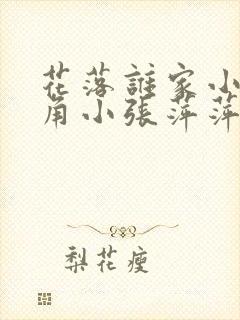 花落誰家小
角小張萍萍
梨花瘦